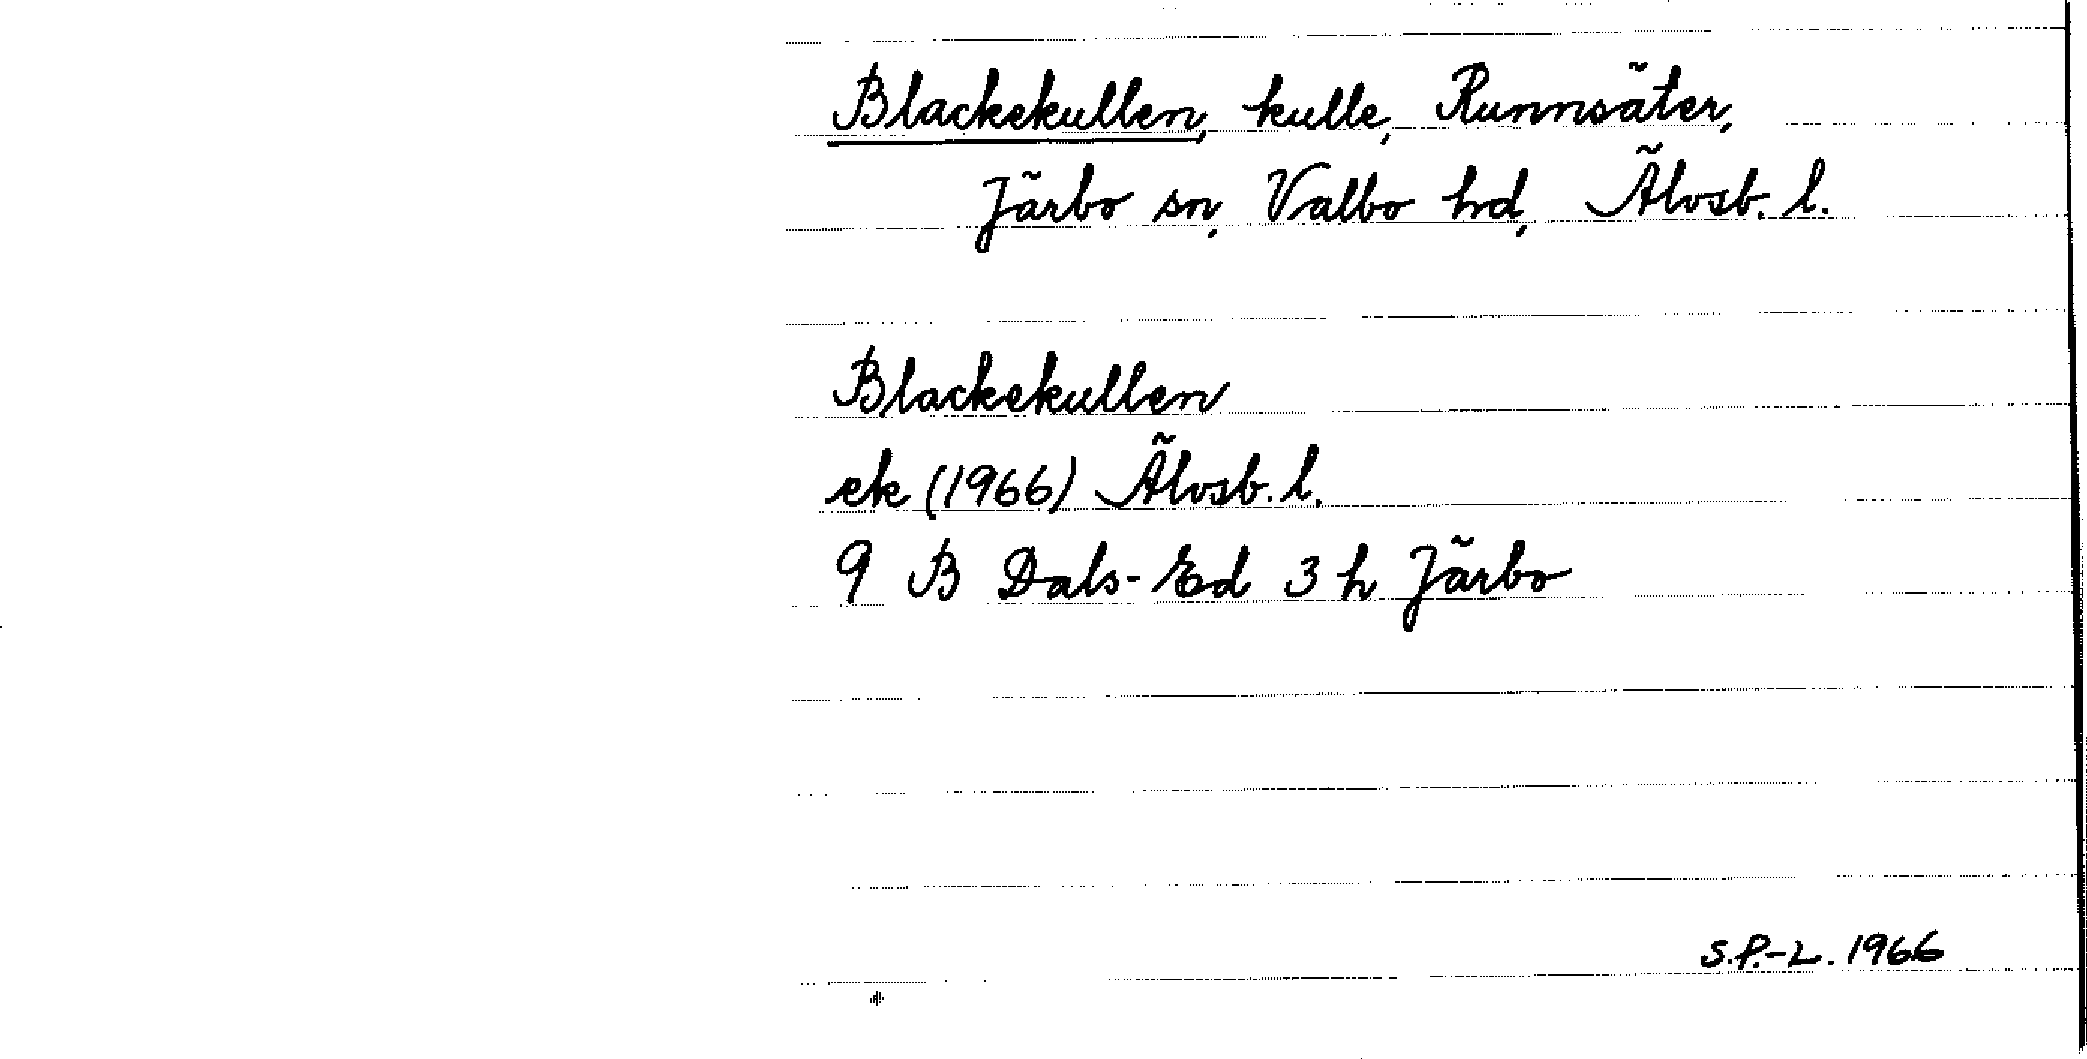 Blackekullen, kulle, Runnsäter,
Järbo sn, Valbo hd, Älvsb. l.
Blackekullen
ek (1966) Älvsb. l.
9 B Dals-Ed 3 h Järbo
S.P.-L. 1966